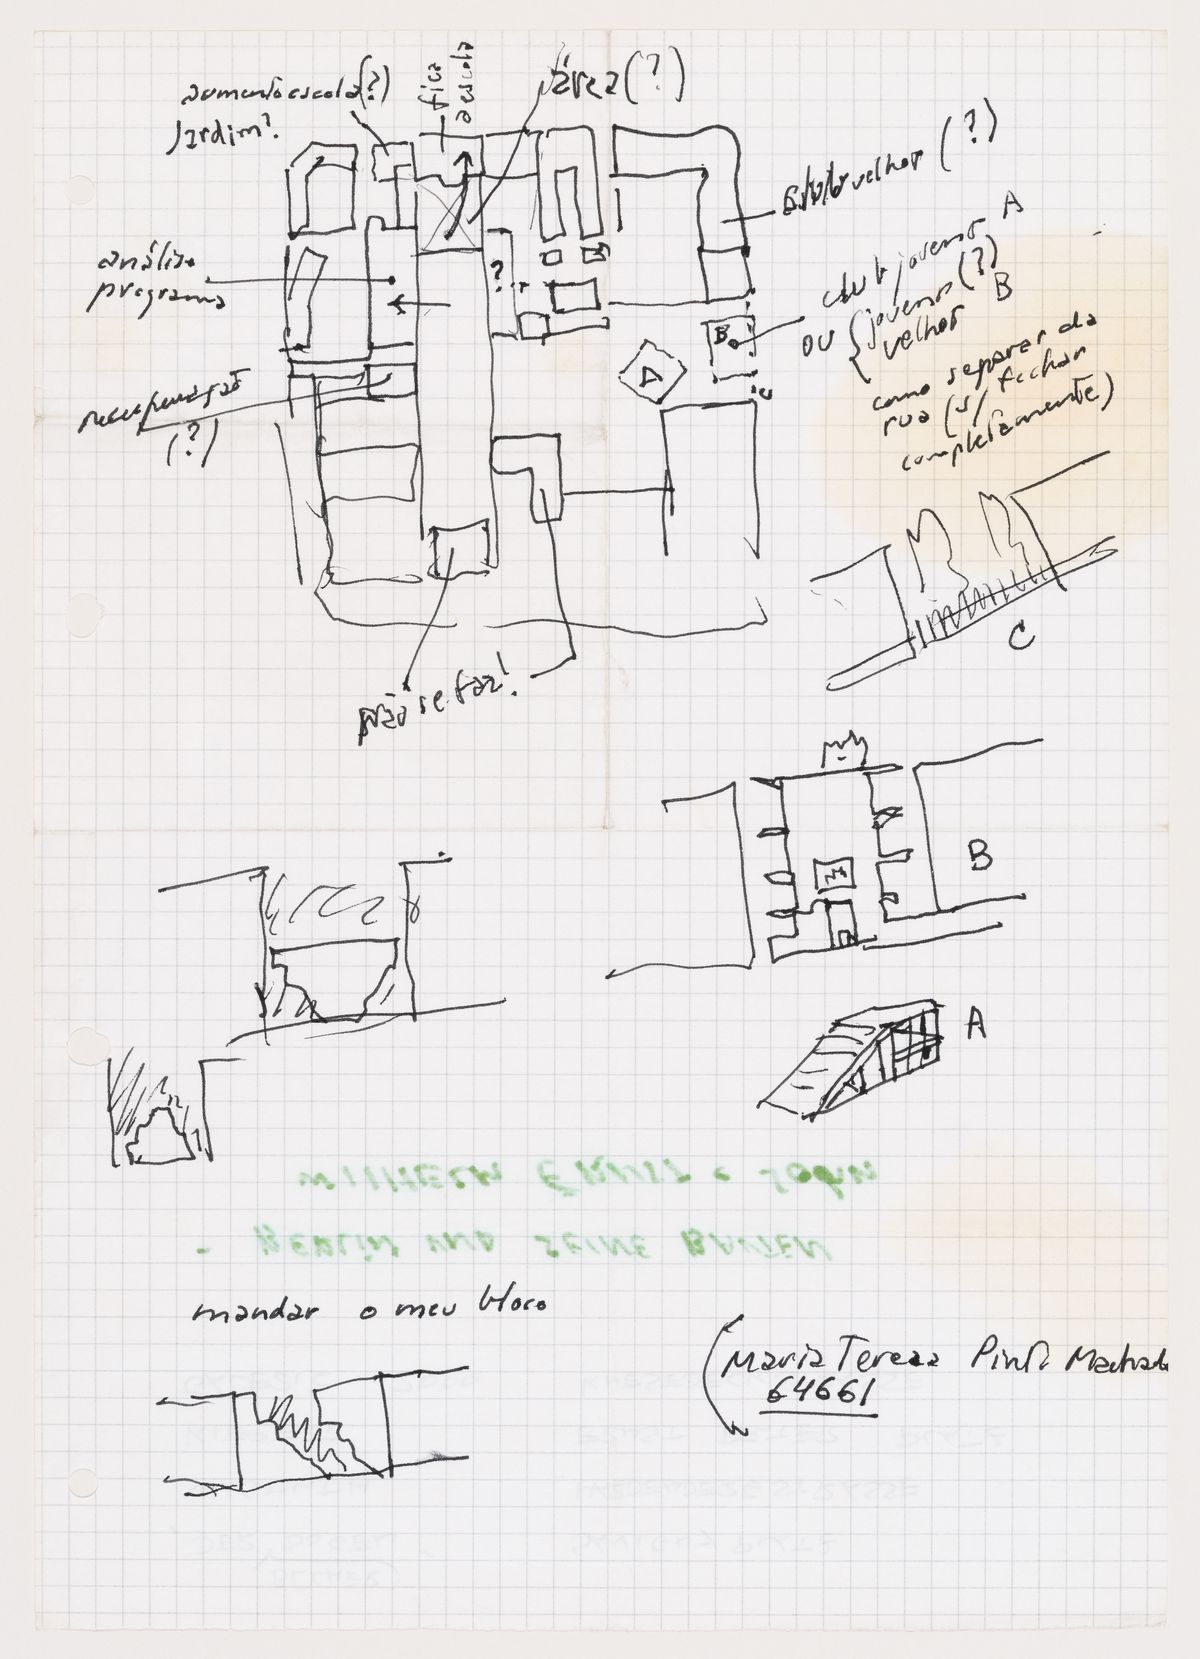 aumento escola (?)
Jardim?
fica
a escola
área (?)
velhos (?)
análise
programa
?
recuperação
(?)
A
B
club jovens A
ou { jovens (?)
velhos B
como separar da
rua (s/ fechar
completamente)
C
não se faz!
C
B
A
WILHELM ERNST + Sohn
- BERLIN UND SEINE BAUTEN
mandar o meu bloco
Maria Tereza Pinto Machado
64661